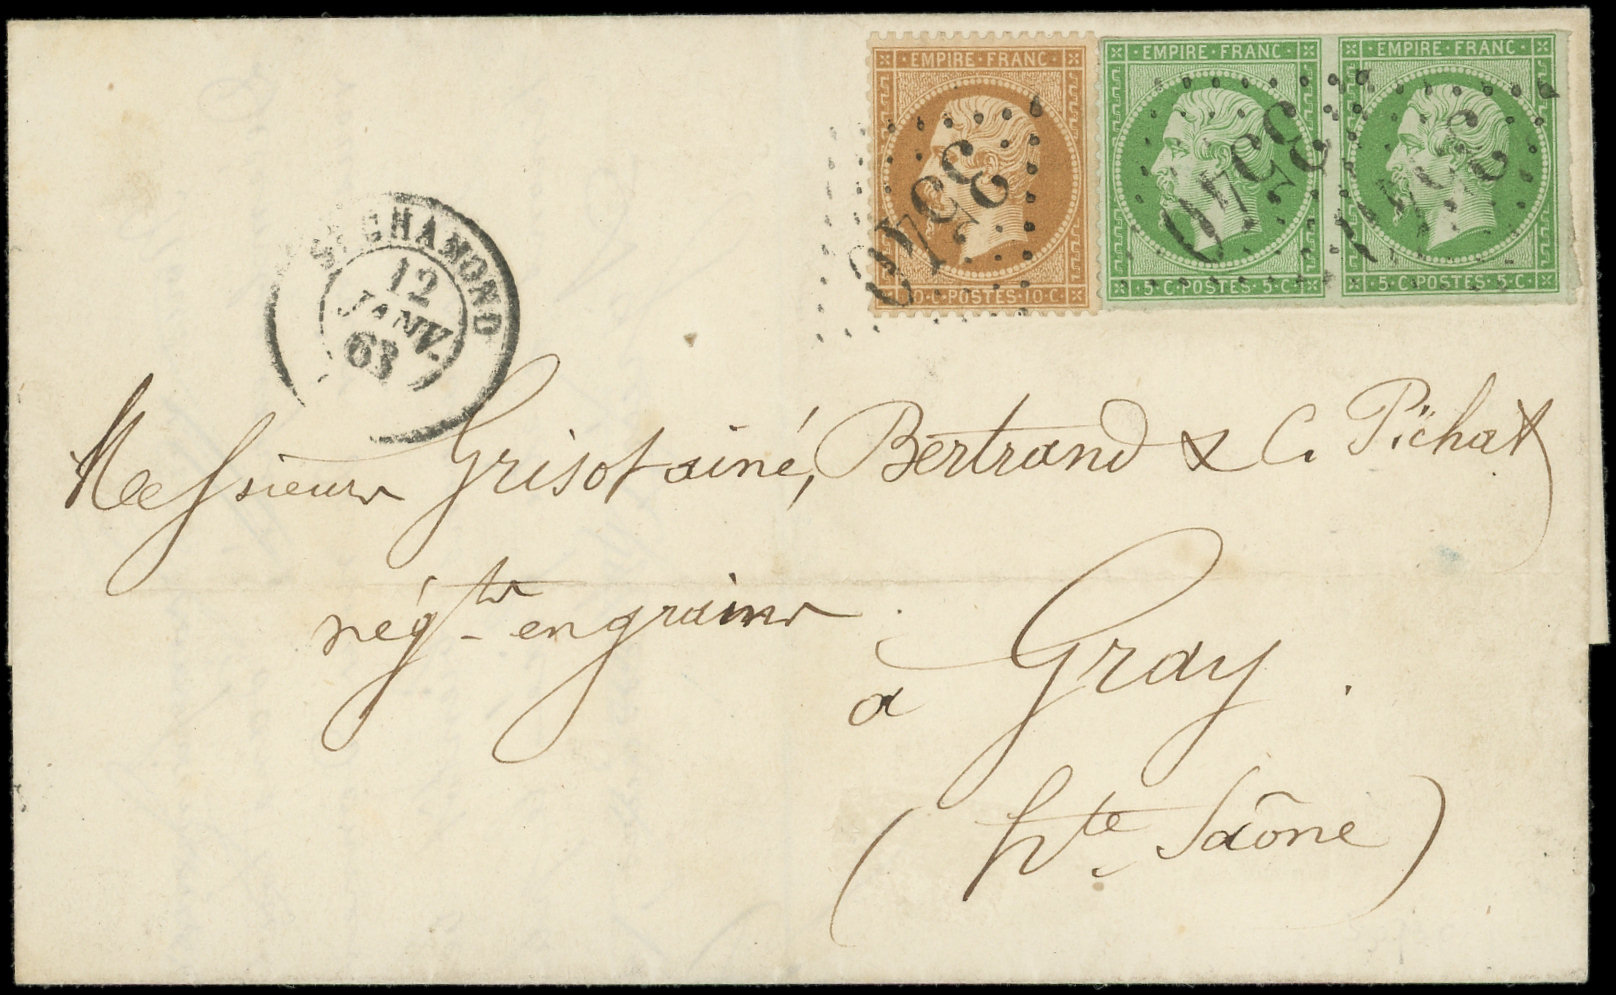 EMPIRE · FRANC
10 · C · POSTES · 10 C ·
EMPIRE · FRANC
5 · C · POSTES · 5 · C
EMPIRE · FRANC
5 · C · POSTES · 5 · C
3540
3540
3540
ST CHAMOND
12
JANV.
63
Messieurs Grisot ainé, Bertrand & C. Pichat
négts en grains
à Gray.
(hte Saône)